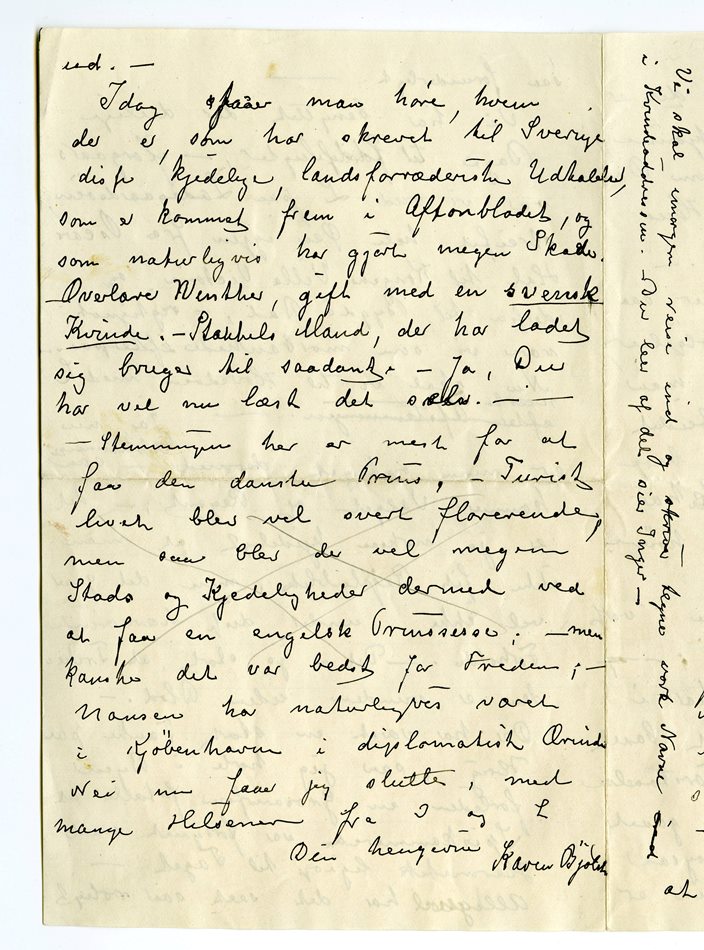 ud. —
Idag faaer man høre, hvem
der er, som har skrevet til Sverige
disse kjedelige, landsforræderske Udtalelser,
som er kommet frem i Aftonbladet, og
som naturligvis har gjørt megen Skade.
Overlærer Winther, gift med en svensk
Kvinde. — Stakkels Mand, der har ladet
sig bruges til saadant. — Ja, Du
har vel nu læst det selv. — —
— Stemningen her er mest for at
faa den danske Prins, — Turist
livet blev vel svert florerende,
men saa blev der vel megen
Stads og Kjedeligheder dermed ved
at faa en engelsk Prinsesse; — men
kanske det var bedst for Freden; —
Nansen har naturligvis været
i Kjöbenhavn i diplomatisk Ærinde
Nei nu faar jeg slutte, med
mange Hilsener fra I og L
Din hengivne Karen
Vi skal imorgen reise ind og skrive tegne vore Navne
i Kvindeadressen. — Du ler af det sier Inger —
at